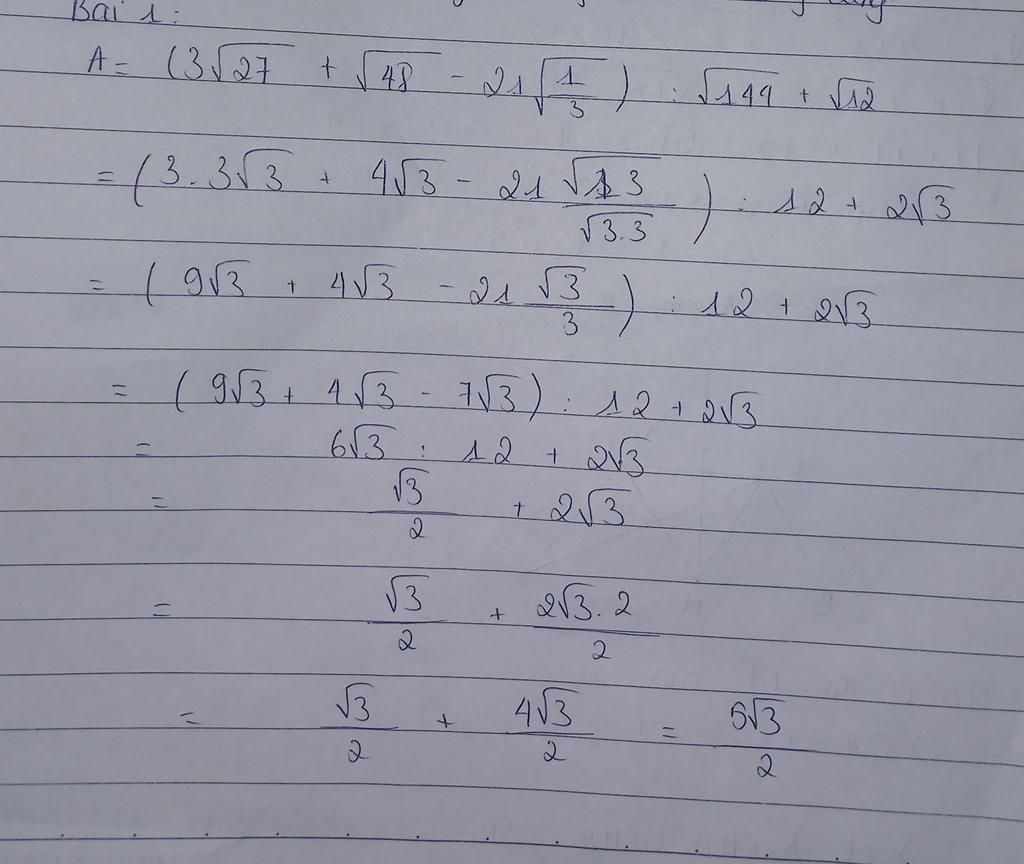 Bài 1:
A = (3√27 + √48 - 21√(1/3)) : √144 + √12
= (3.3√3 + 4√3 - 21 √(1 3)/√(3.3)) : 12 + 2√3
= (9√3 + 4√3 - 21 √3/3) : 12 + 2√3
= (9√3 + 4√3 - 7√3) : 12 + 2√3
= 6√3 : 12 + 2√3
= √3/2 + 2√3
= √3/2 + 2√3.2/2
= √3/2 + 4√3/2 = 5√3/2